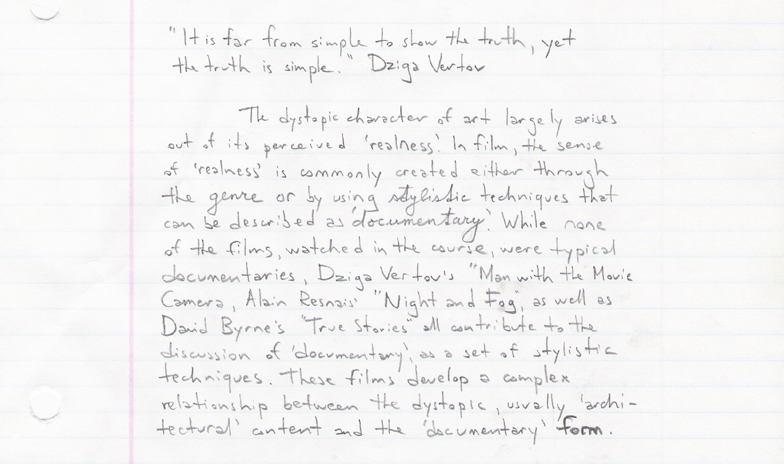 "It is far from simple to show the truth, yet
the truth is simple." Dziga Vertov
The dystopic character of art largely arises
out of its perceived 'realness'. In film, the sense
of 'realness' is commonly created either through
the genre or by using stylistic techniques that
can be described as 'documentary'. While none
of the films, watched in the course, were typical
documentaries, Dziga Vertov's "Man with the Movie
Camera, Alain Resnais' "Night and Fog", as well as
David Byrne's "True Stories" all contribute to the
discussion of 'documentary', as a set of stylistic
techniques. These films develop a complex
relationship between the dystopic, usually 'archi-
tectural' content and the 'documentary' form.